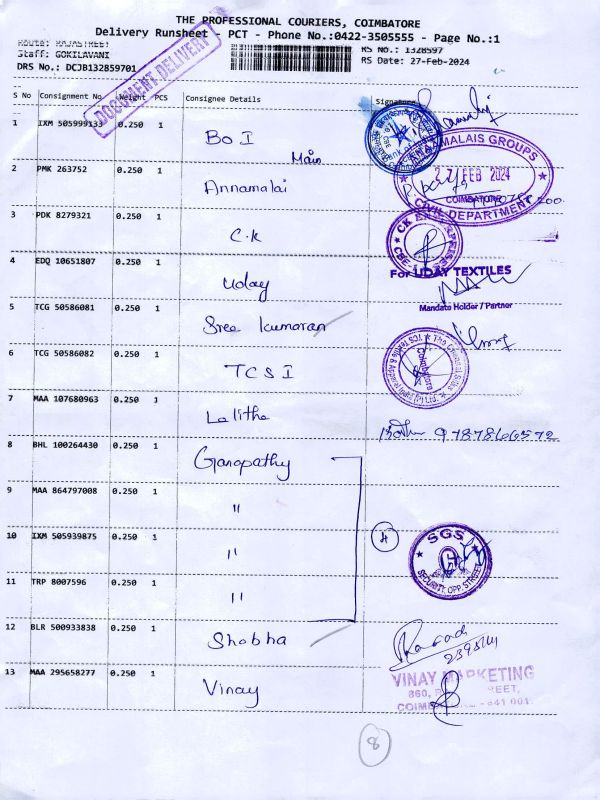 THE PROFESSIONAL COURIERS, COIMBATORE
Delivery Runsheet - PCT - Phone No.:0422-3505555 - Page No.:1
Route: RAJASTREET
Staff: GOKILAVANI
RS No.: 1328597
DRS No.: DCJB132859701
RS Date: 27-Feb-2024
DOCUMENT DELIVERY
S No Consignment No Weight PCS Consignee Details Signature
1 IXM 505999133 0.250 1 BO I Main
2 PMK 263752 0.250 1 Annamalai
ANNAMALAIS GROUPS
27 FEB 2024
COIMBATORE
CIVIL DEPARTMENT
3 PDK 8279321 0.250 1 C.K
4 EDQ 10651807 0.250 1 Uday
For UDAY TEXTILES
Mandate Holder / Partner
5 TCG 50586081 0.250 1 Sree Kumaran
6 TCG 50586082 0.250 1 TCS I
Coimbatore
7 MAA 107680963 0.250 1 Lalitha
9787866572
8 BHL 100264430 0.250 1 Ganapathy
9 MAA 864797008 0.250 1 "
10 IXM 505939875 0.250 1 "
4
SGS
SECURITY, OPP STREET
11 TRP 8007596 0.250 1 "
12 BLR 500933838 0.250 1 Shobha
13 MAA 295658277 0.250 1 Vinay
VINAY MARKETING
860, STREET,
COIMBATORE - 641 001.
8